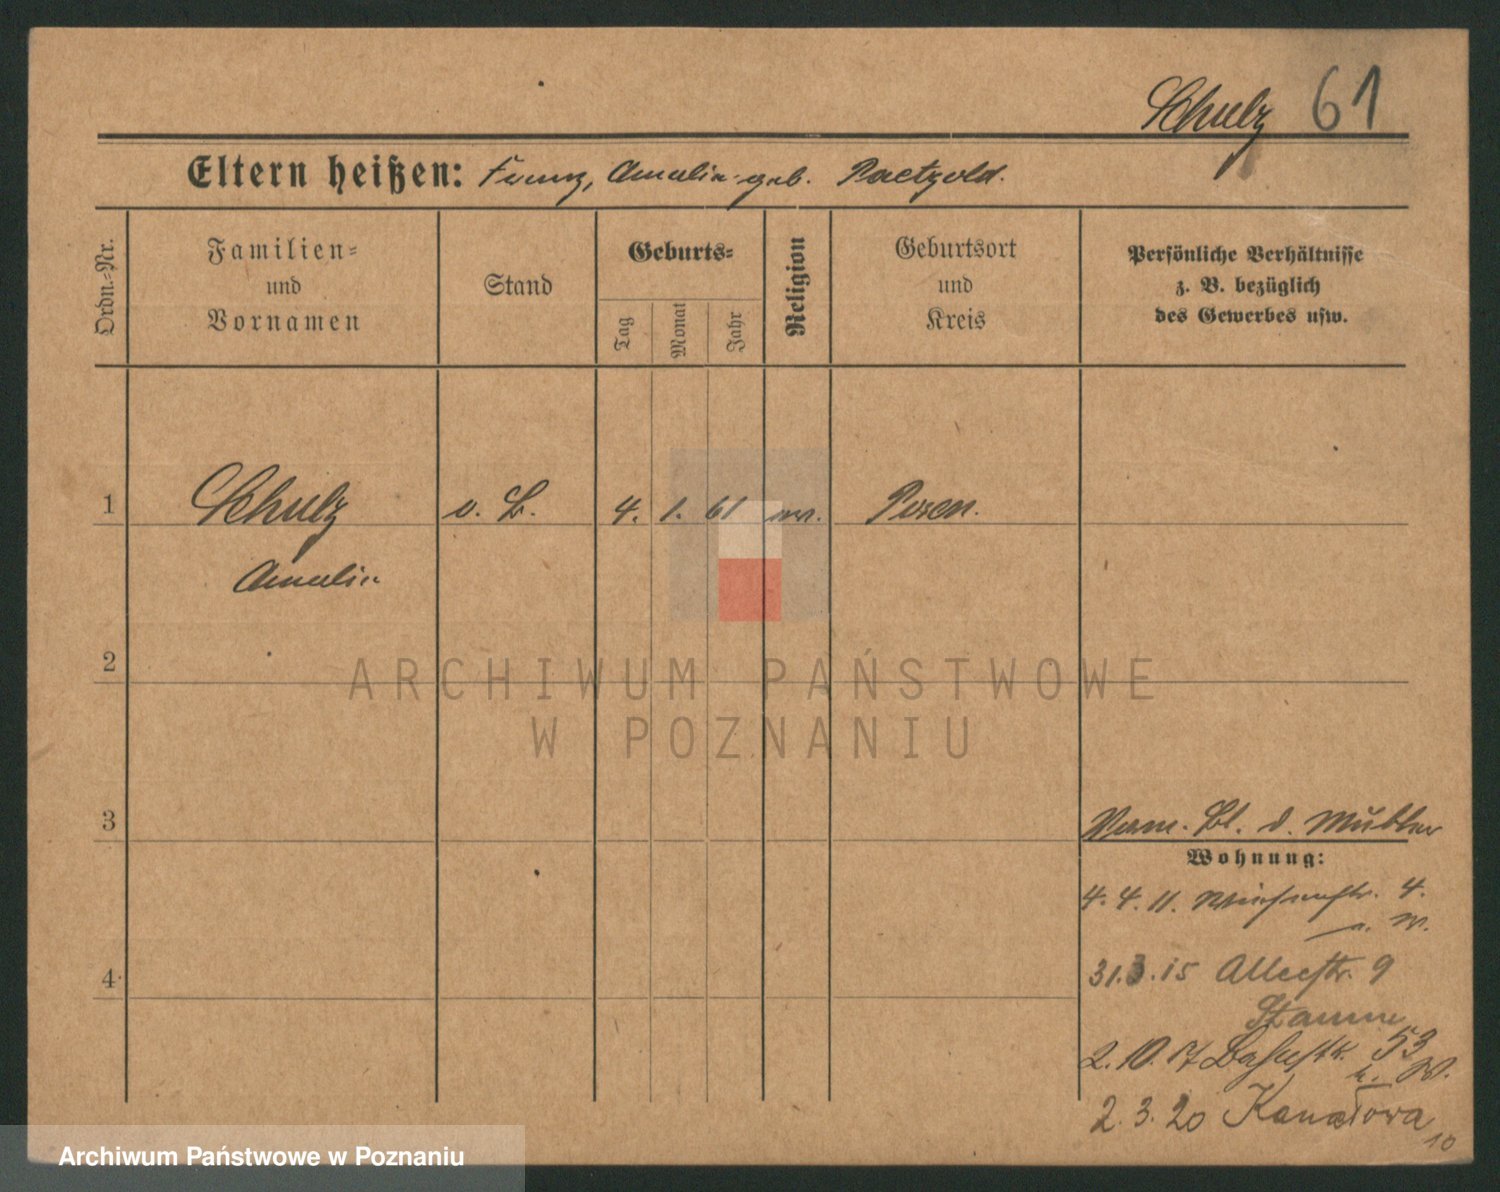 Schulz 61
Eltern heißen: Franz, Amalia geb. Paetzold.
Ordn.-Nr.
Familien-
und
Vornamen
Stand
Geburts-
Tag
Monat
Jahr
Religion
Geburtsort
und
Kreis
Persönliche Verhältnisse
z. B. bezüglich
des Gewerbes usw.
1 Schulz o. B. 4. 1. 61 Posen.
Amalia
2
3
4
Bl. d. Mutter
Wohnung:
4. 4. 11. 4.
31.3.15 Alleestr. 9
Stamm
2. 10. 17 53
W.
2. 3. 20 Kanałowa
10
ARCHIWUM PAŃSTWOWE
W POZNANIU
Archiwum Państwowe w Poznaniu